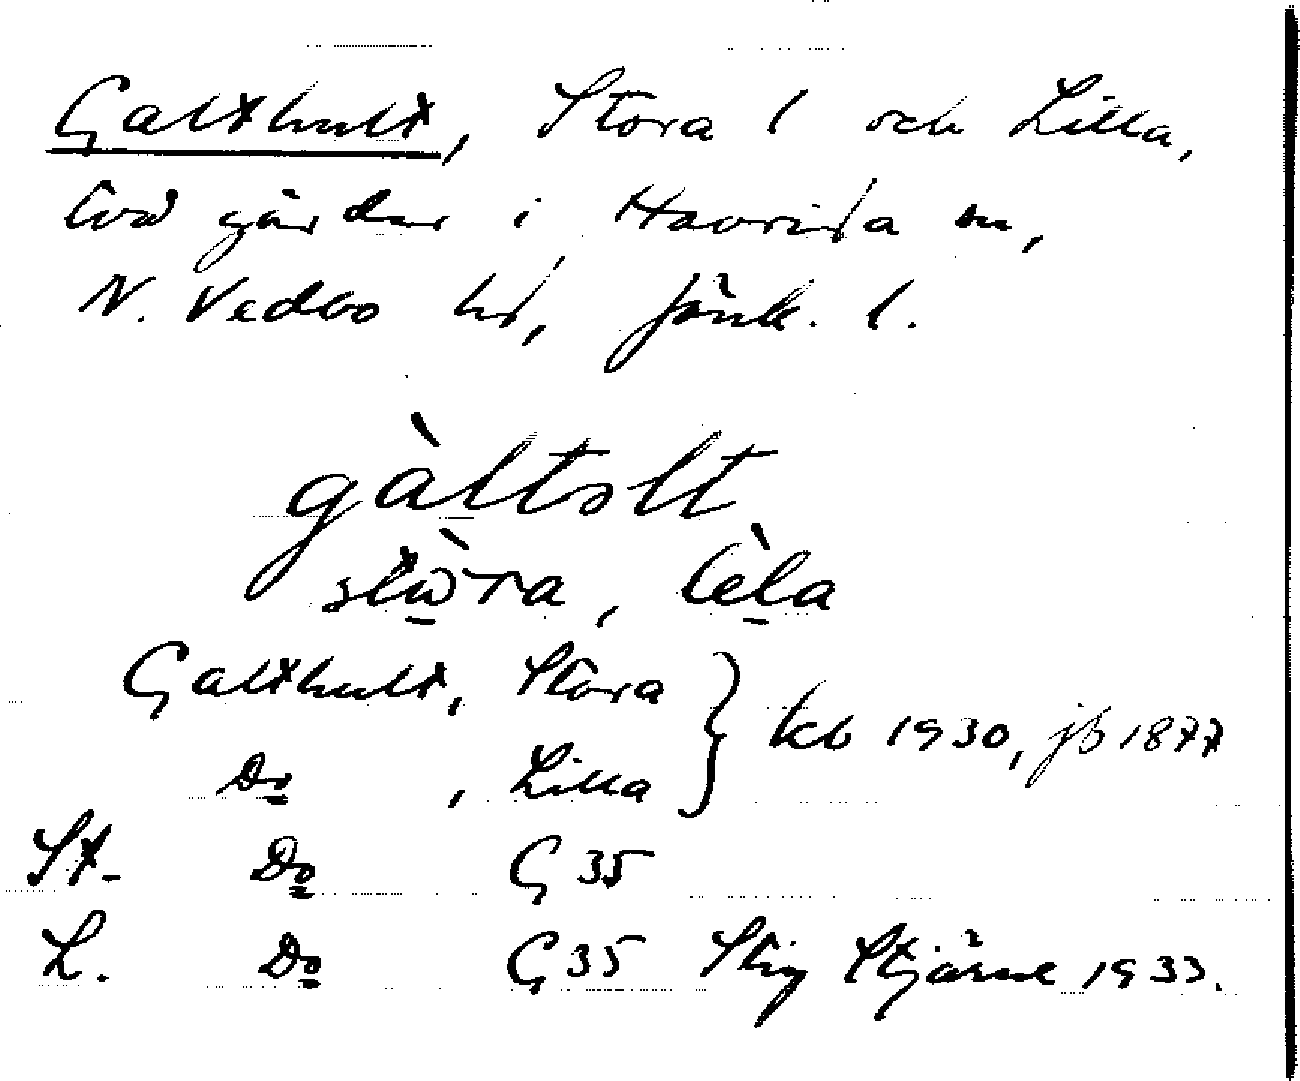 Galthult, Stora l och Lilla,
två gårdar i Haurida sn,
N. Vedbo hd, Jönk. l.
gàltolt
stὼra, lèla
Galthult, Stora } kb 1930, jb 1877
Do , Lilla
St. Do G 35
L. Do G 35 Stig Stjärne 1933.